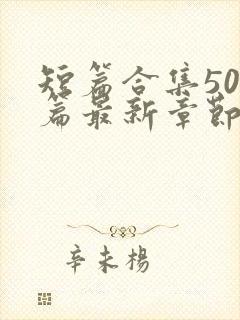 短篇合集50
篇最新章节
辛未杨